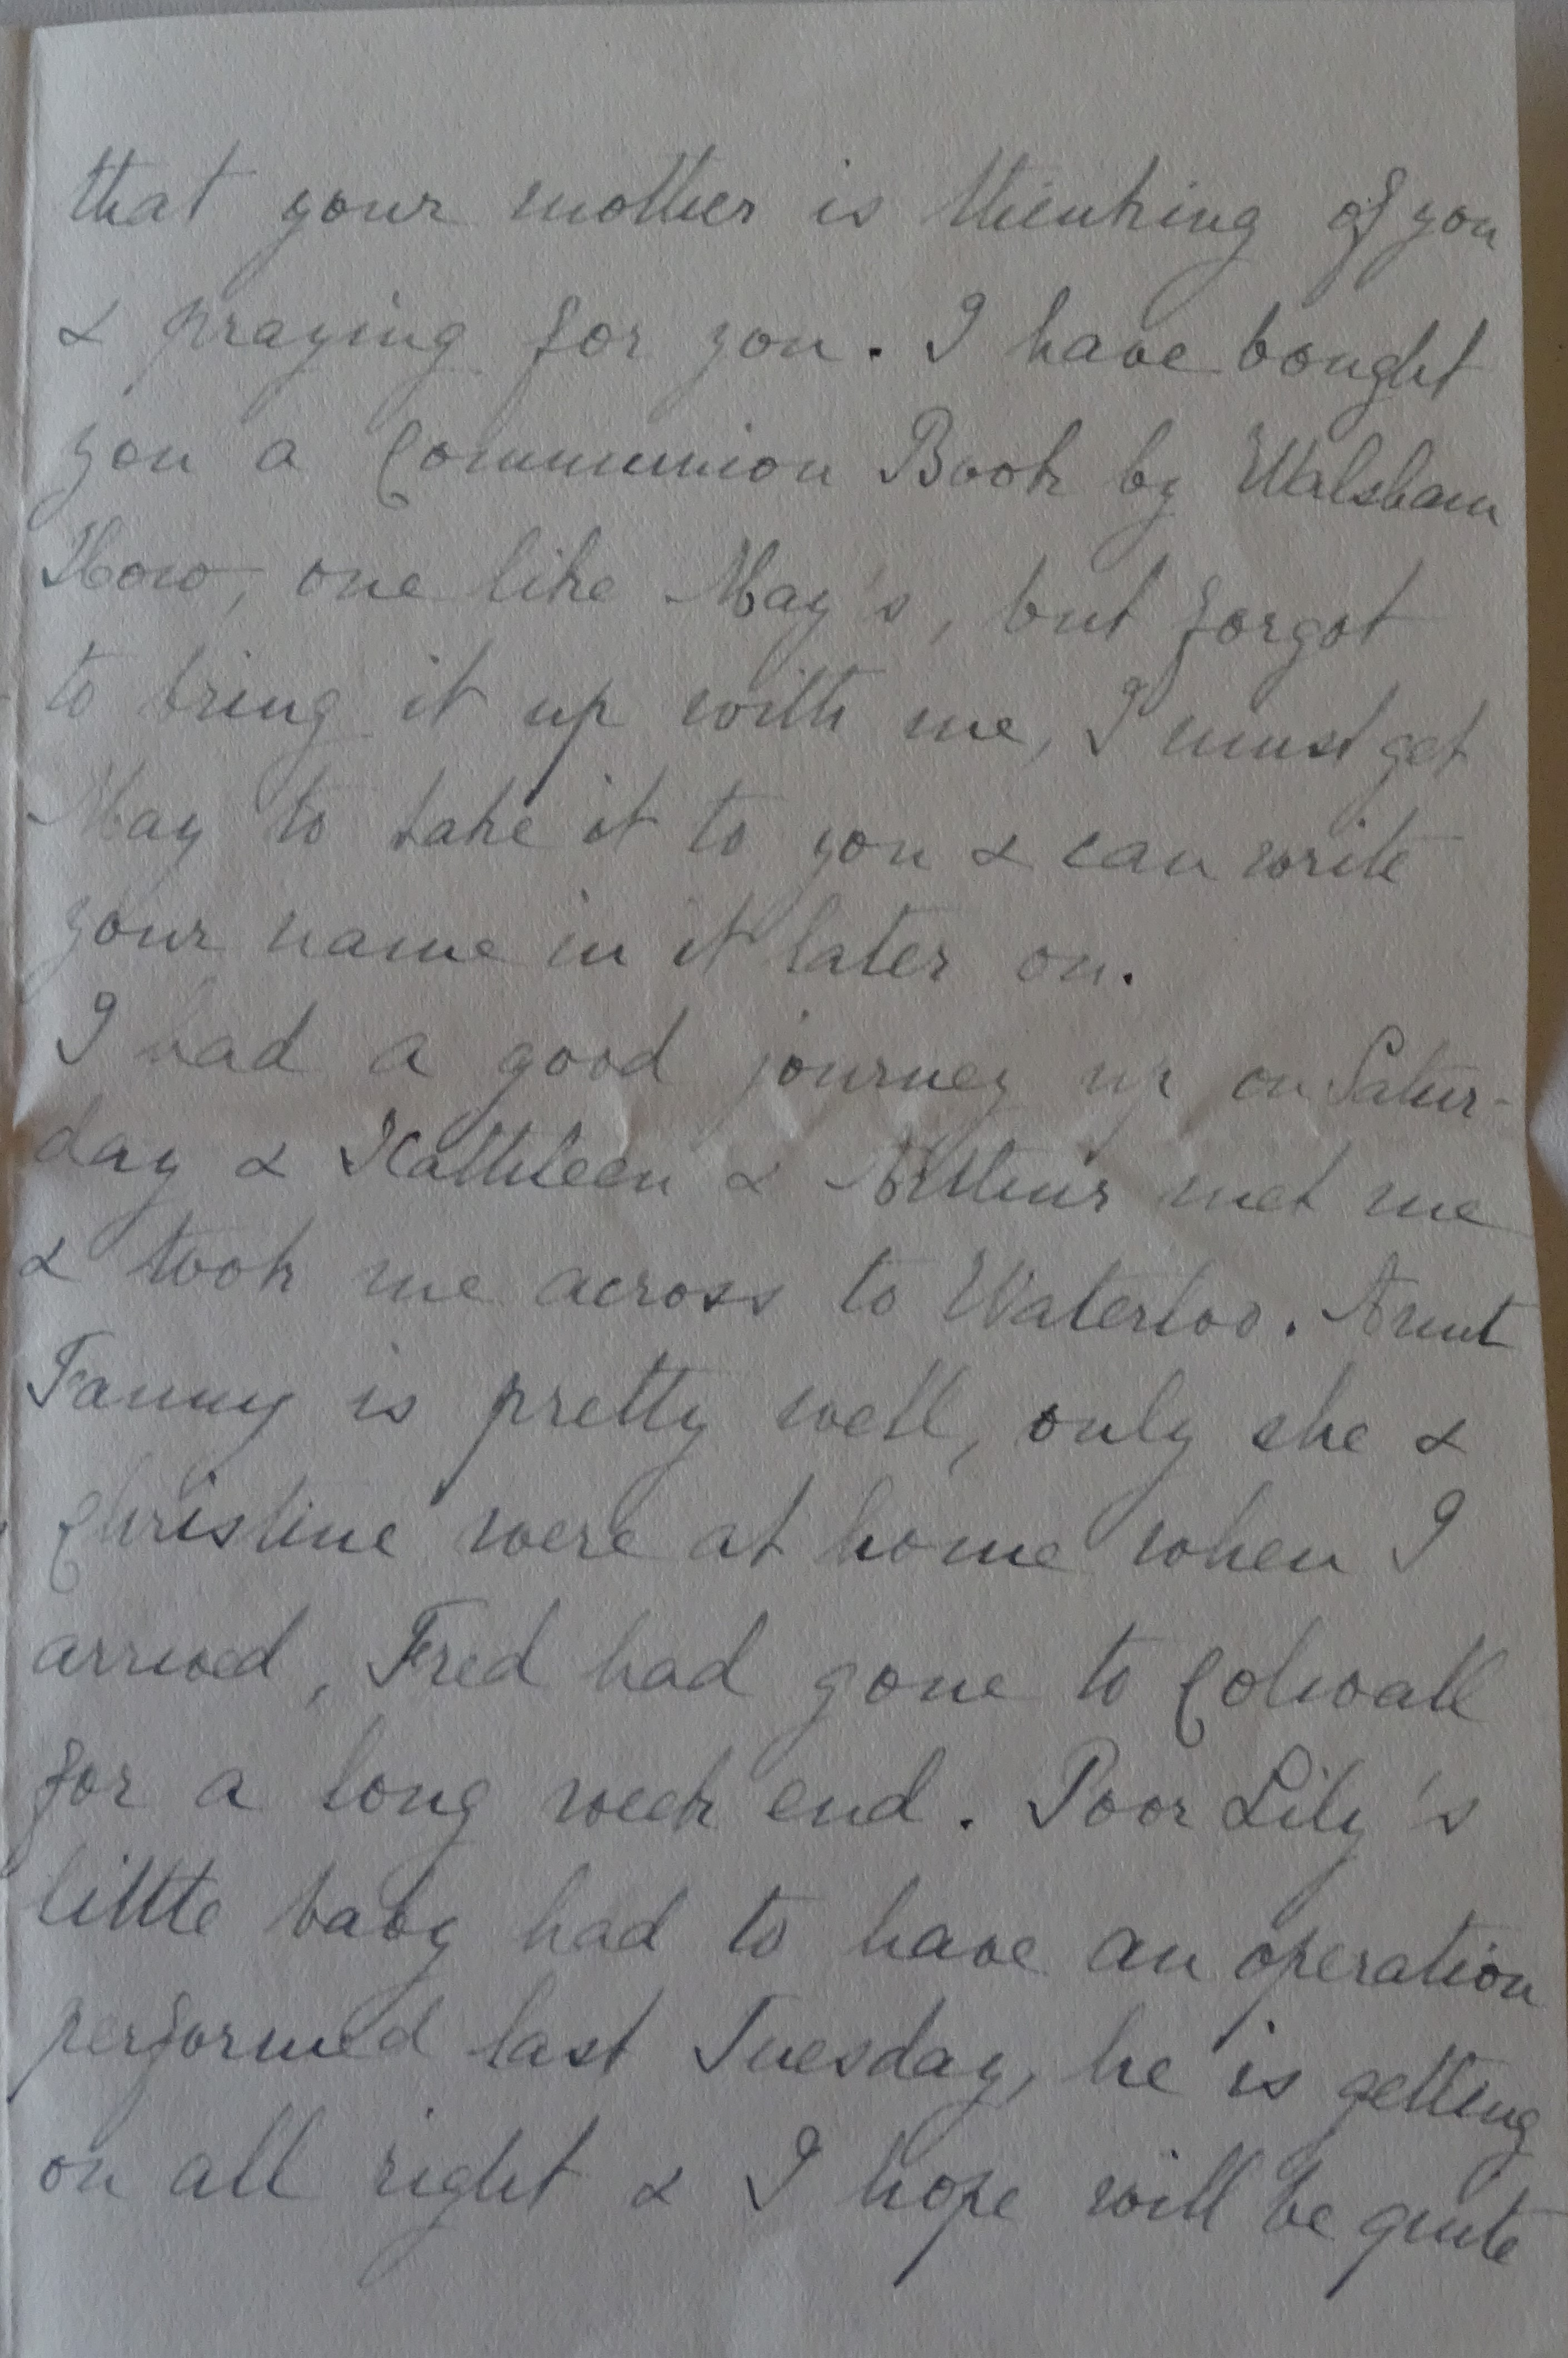 that your mother is thinking of you
& praying for you. I have bought
you a Communion Book by Walsham
How, one like May's, but forgot
to bring it up with me, I must get
May to take it to you & can write
your name in it later on.
I had a good journey up on Satur-
day & Kathleen & Arthur met me
& took me across to Waterloo. Aunt
Fanny is pretty well, only she &
Christine were at home when I
arrived, Fred had gone to Colwall
for a long week end. Poor Lily's
little baby had to have an operation
performed last Tuesday, he is getting
on all right & I hope will be quite